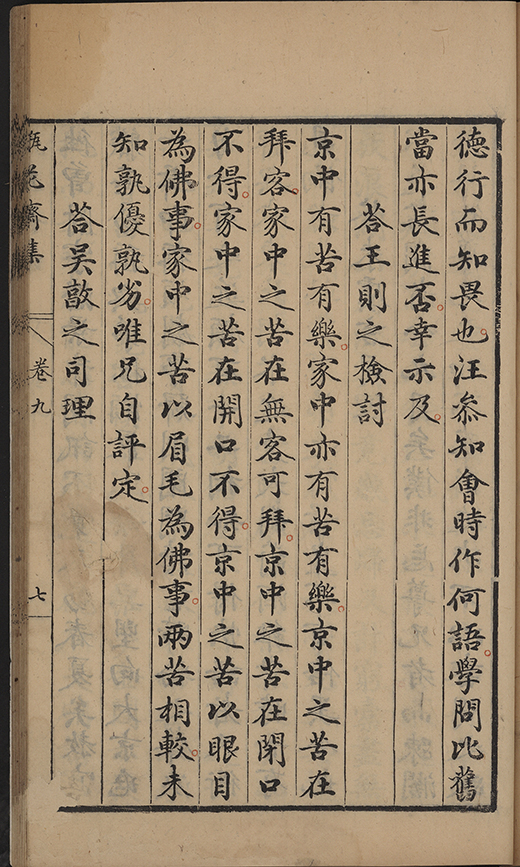 德行而知畏也汪參知會時作何語學問比舊
當亦長進否幸示及
荅王則之檢討
京中有苦有樂家中亦有苦有樂京中之苦在
拜客家中之苦在無客可拜京中之苦在閉口
不得家中之苦在開口不得京中之苦以眼目
為佛事家中之苦以眉毛為佛事兩苦相較未
知孰優孰劣唯兄自評定
荅吳敦之司理
瓶花齋集 卷九 七